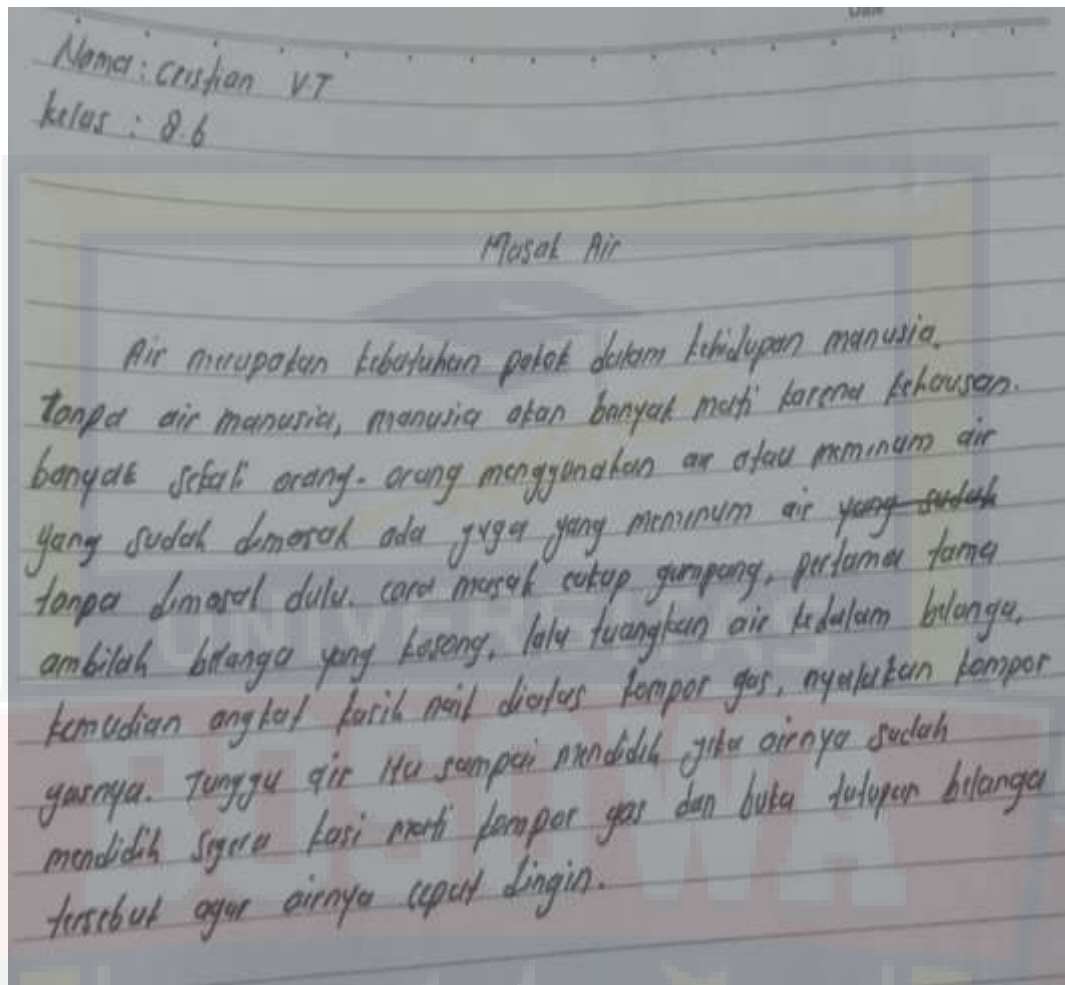 Nama : Cristian V.T
kelas : 8.6
Masak Air
Air merupakan kebutuhan pokok dalam kehidupan manusia.
tanpa air manusia, manusia akan banyak mati karena kehausan.
banyak sekali orang-orang menggunakan air atau meminum air
yang sudah dimasak ada juga yang meminum air yang sudah
tanpa dimasak dulu. cara masak cukup gampang, pertama tama
ambilah bilanga yang kosong, lalu tuangkan air kedalam bilanga,
kemudian angkat kasih naik diatas kompor gas, nyalakan kompor
gasnya. Tunggu air itu sampai mendidih jika airnya sudah
mendidih segera kasi mati kompor gas dan buka tutupan bilanga
tersebut agar airnya cepat dingin.
UNIVERSITAS
BOSOWA